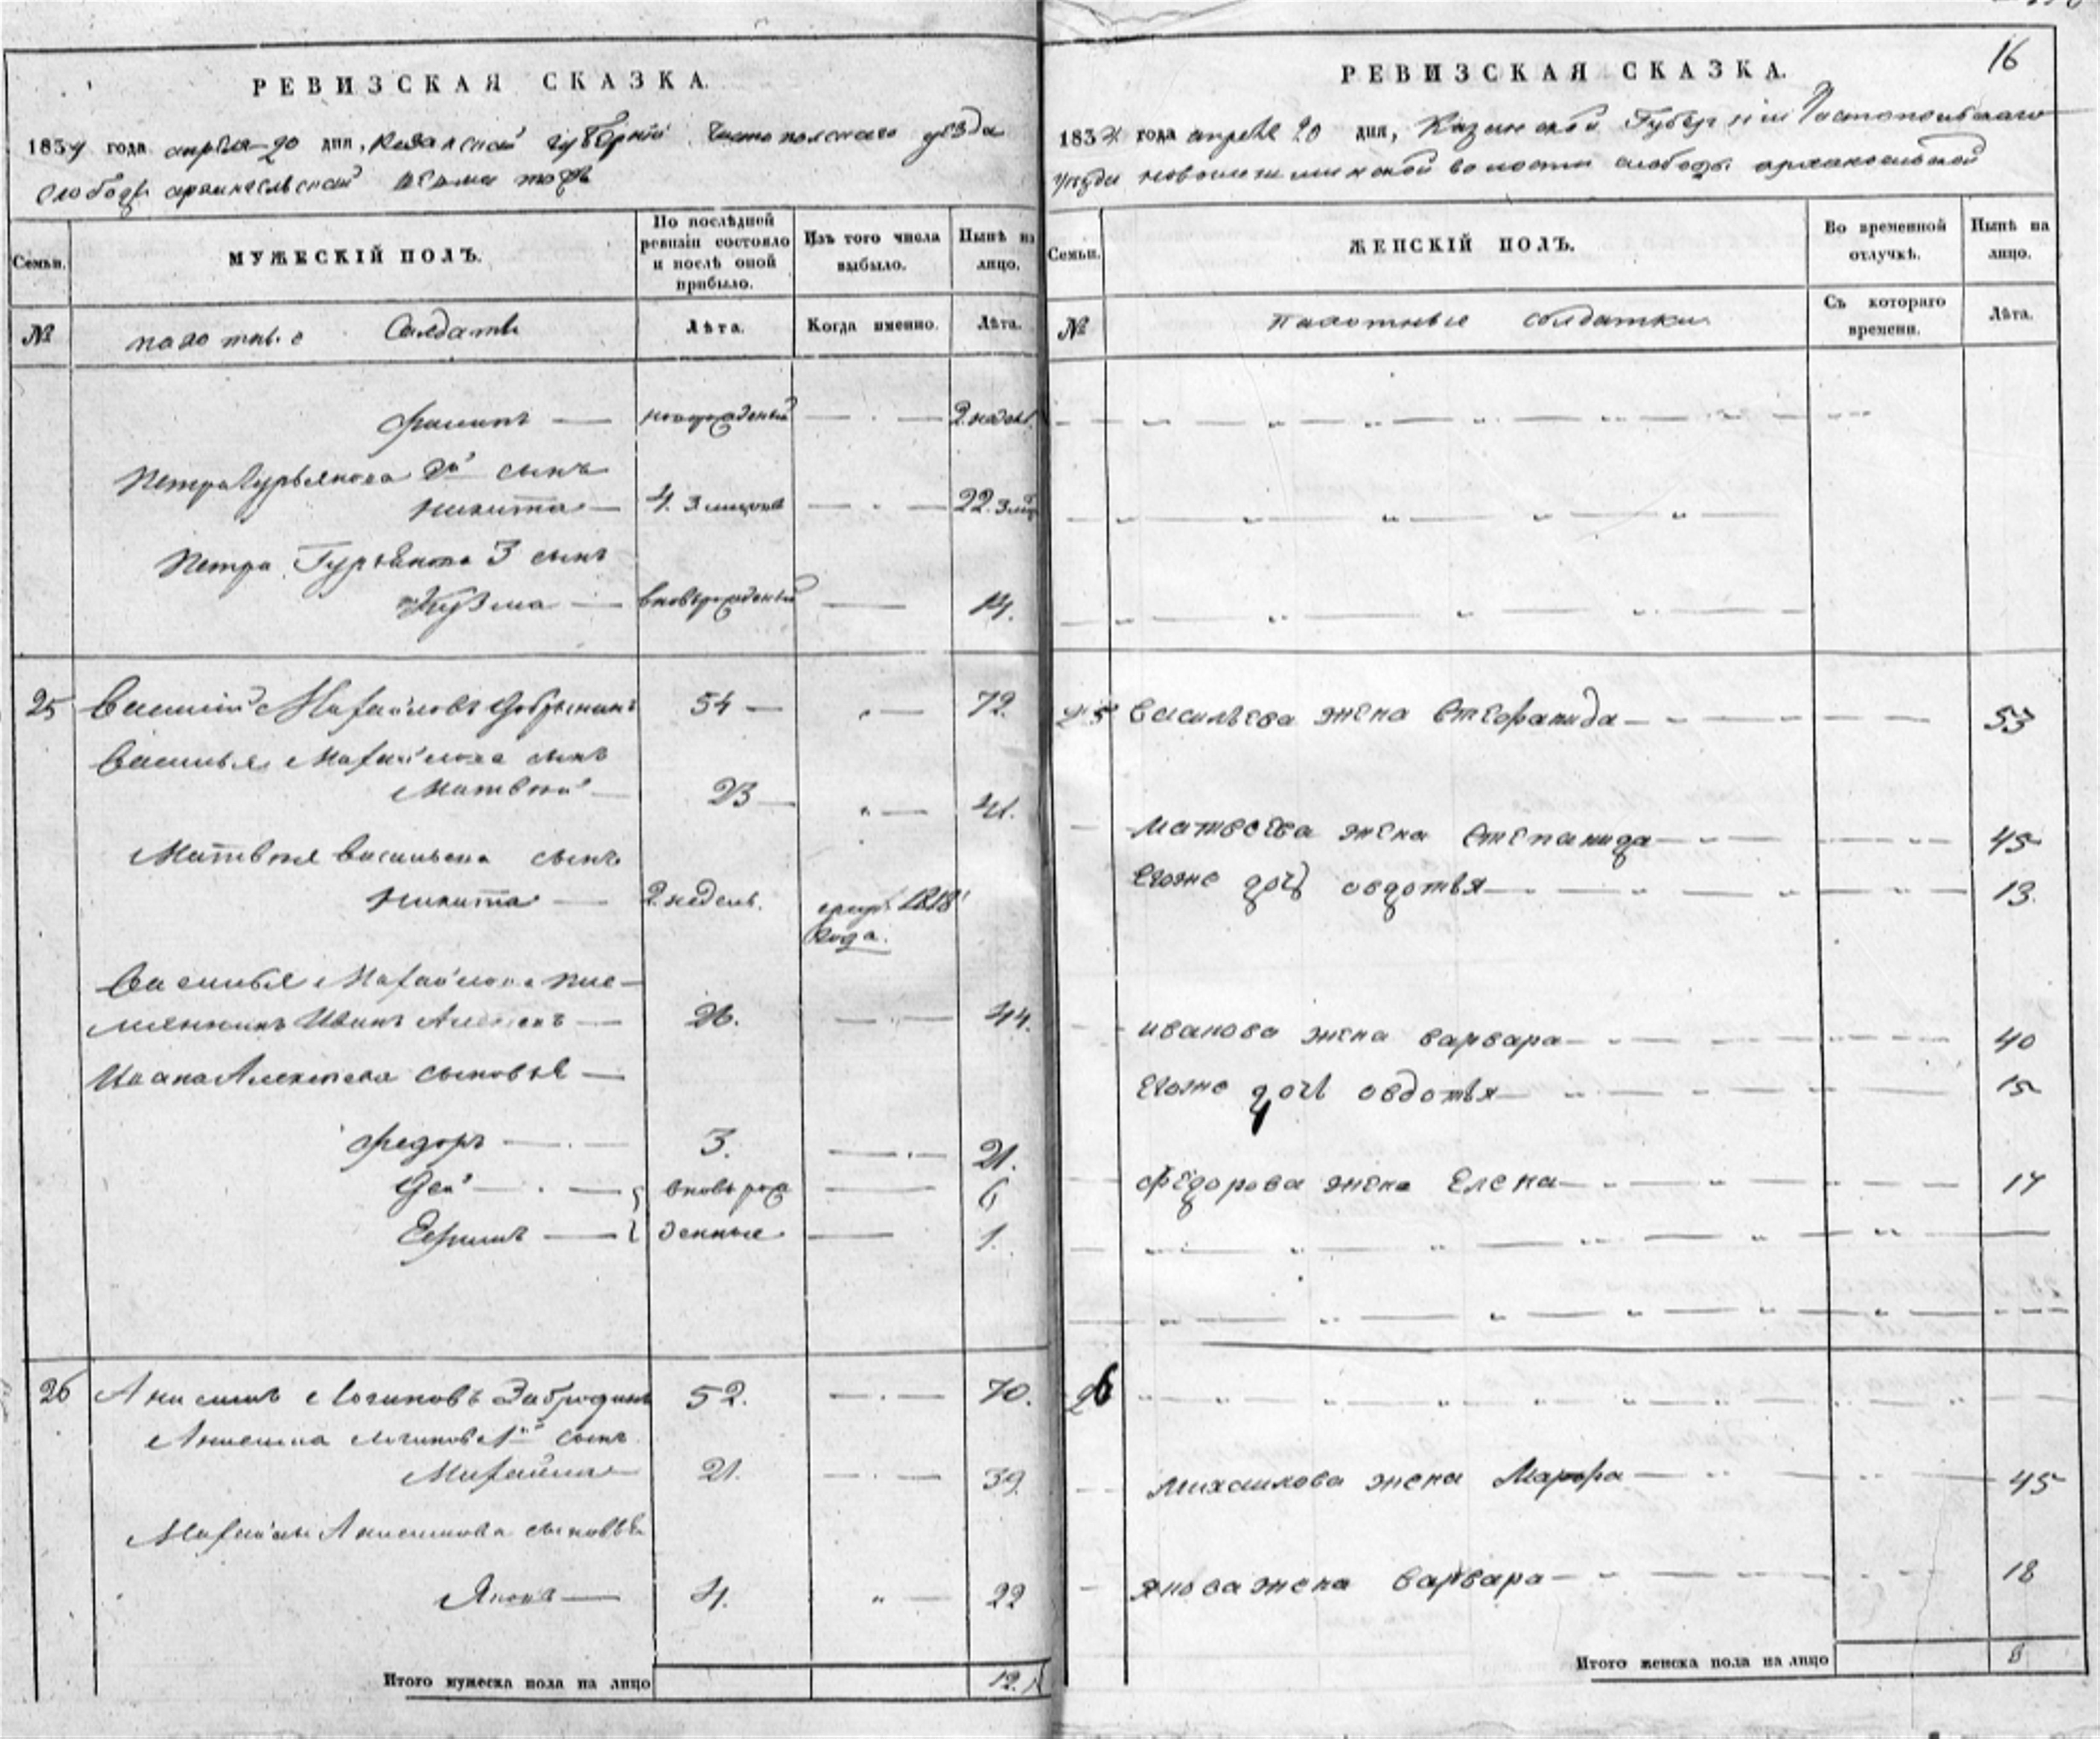 РЕВИЗСКАЯ СКАЗКА.
1834 года апреля 20 дня, Казанской губернии Чистопольскаго уезда
слободы архангельской
Семьи.
МУЖЕСКІЙ ПОЛЪ.
По послѣдней ревизіи состояло и послѣ оной прибыло.
Изъ того числа выбыло.
Нынѣ на лицо.
№
пахотные Солдаты
Лѣта.
Когда именно.
Лѣта.
Филипъ — новорожденый — 2 недели
Петра Гурьянова 2й сынъ
Никита — 4. 3 месяцов — 22. 3
Петра Гурьянова 3 сынъ
Кузма — вновьрожденый — 14.
25 Василий Михайловъ Добрынинъ 54 — " — 72.
Василья Михайлова сынъ
Матвей — 23 — " — 41.
Матвея Васильева сынъ
Никита — 2 недель. 1818
года.
Василья Михайлова пле-
мянникъ Иванъ Алексеевъ — 26. — 44.
Ивана Алексеева сыновья —
Федоръ — 3. — 21.
вновьрож — 6
Ефимъ — денные — 1.
26 Анисимъ Логиновъ Забродинъ 52. — 70.
Анисима Логинова 1й сынъ
Михайла — 21. — 39
Михайлы Анисимова сыновья
Яковъ — 4. " — 22
Итого мужеска пола на лицо 12.
16
РЕВИЗСКАЯ СКАЗКА.
1834 года апреля 20 дня, Казанской Губернии Чистопольскаго
уезда новошешминской волости слободы архангельской
Семьи.
ЖЕНСКІЙ ПОЛЪ.
Во временной отлучкѣ.
Нынѣ на лицо.
№
Пахотные солдатки
Съ котораго времени.
Лѣта.
25 васильева жена Стефанида — 53
матвеева жена степанида — 45
Егоже дочь овдотья — 13.
иванова жена варвара — 40
Егоже дочь овдотья — 15
Федорова жена Елена — 17
26
михаилова жена Марфа — 45
якова жена варвара — 18
Итого женска пола на лицо 8